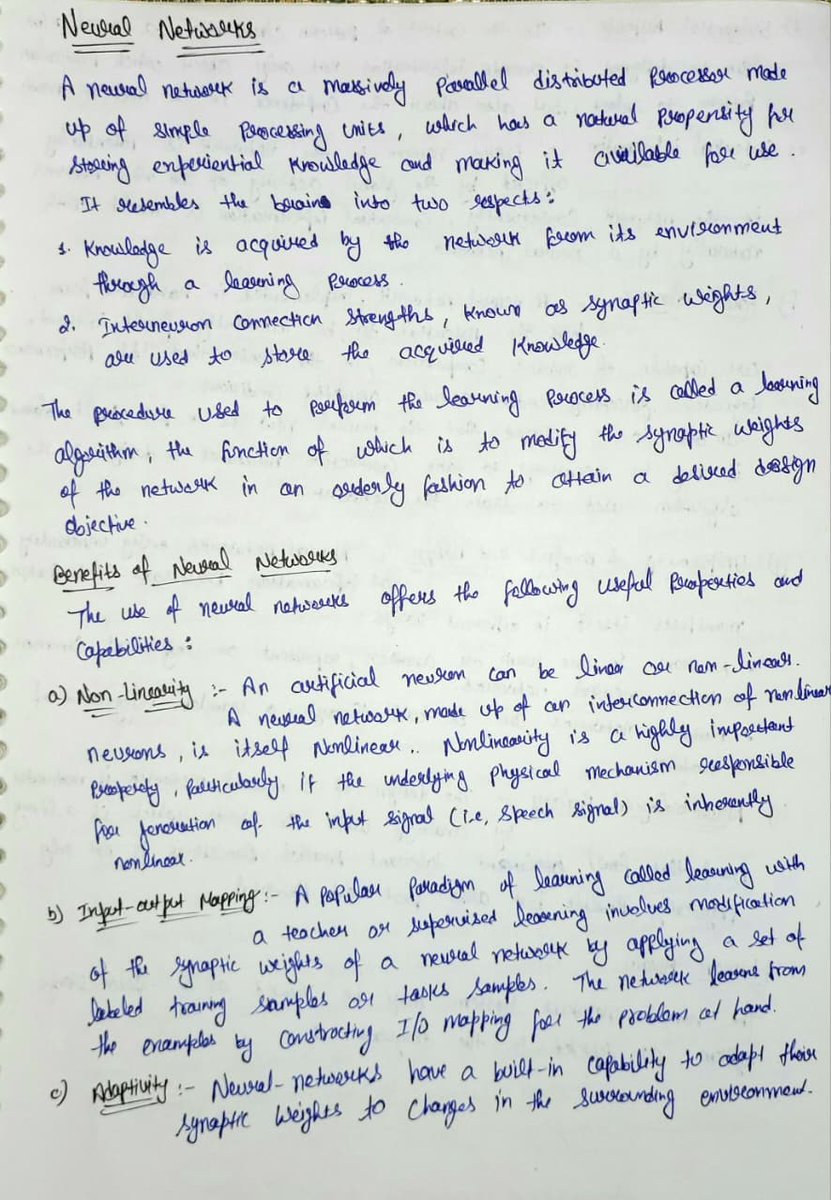 Neural Networks
A neural network is a massively parallel distributed processor made
up of simple processing units, which has a natural propensity for
storing experiential knowledge and making it available for use.
It resembles the brain into two respects:
1. Knowledge is acquired by the network from its environment
through a learning process.
2. Interneuron connection strengths, known as synaptic weights,
are used to store the acquired knowledge.
The procedure used to perform the learning process is called a learning
algorithm, the function of which is to modify the synaptic weights
of the network in an orderly fashion to attain a desired design
objective.
Benefits of Neural Networks
The use of neural networks offers the following useful properties and
Capabilities:
a) Non-linearity :- An artificial neuron can be linear or non-linear.
A neural network, made up of an interconnection of nonlinear
neurons, is itself Nonlinear.. Nonlinearity is a highly important
property, particularly if the underlying physical mechanism responsible
for generation of the input signal (i.e, speech signal) is inherently
nonlinear.
b) Input-output Mapping:- A popular paradigm of learning called learning with
a teacher or supervised learning involves modification
of the synaptic weights of a neural network by applying a set of
labeled training samples or tasks samples. The network learns from
the examples by constructing I/O mapping for the problem at hand.
c) Adaptivity :- Neural-networks have a built-in capability to adapt their
synaptic weights to changes in the surrounding environment.